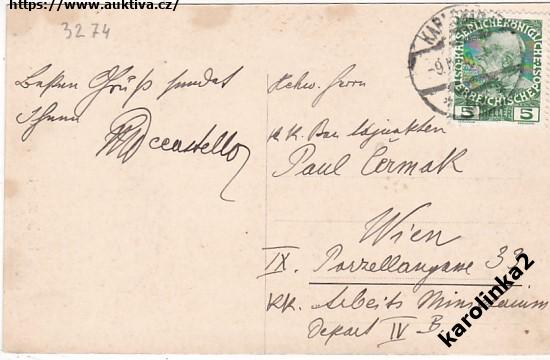 https://www.auktiva.cz/
3274
Besten Gruß sendet
Ihnen
Hochw. Herrn
K.K. Bau Adjunkten
Paul Čermak
Wien
IX. Porzellangasse 33
K.K. Arbeits Ministerium
Depart IV B.
KAISERLICHE KÖNIGLICHE
ÖSTERREICHISCHE POST
5 HELLER 5
karolinka2